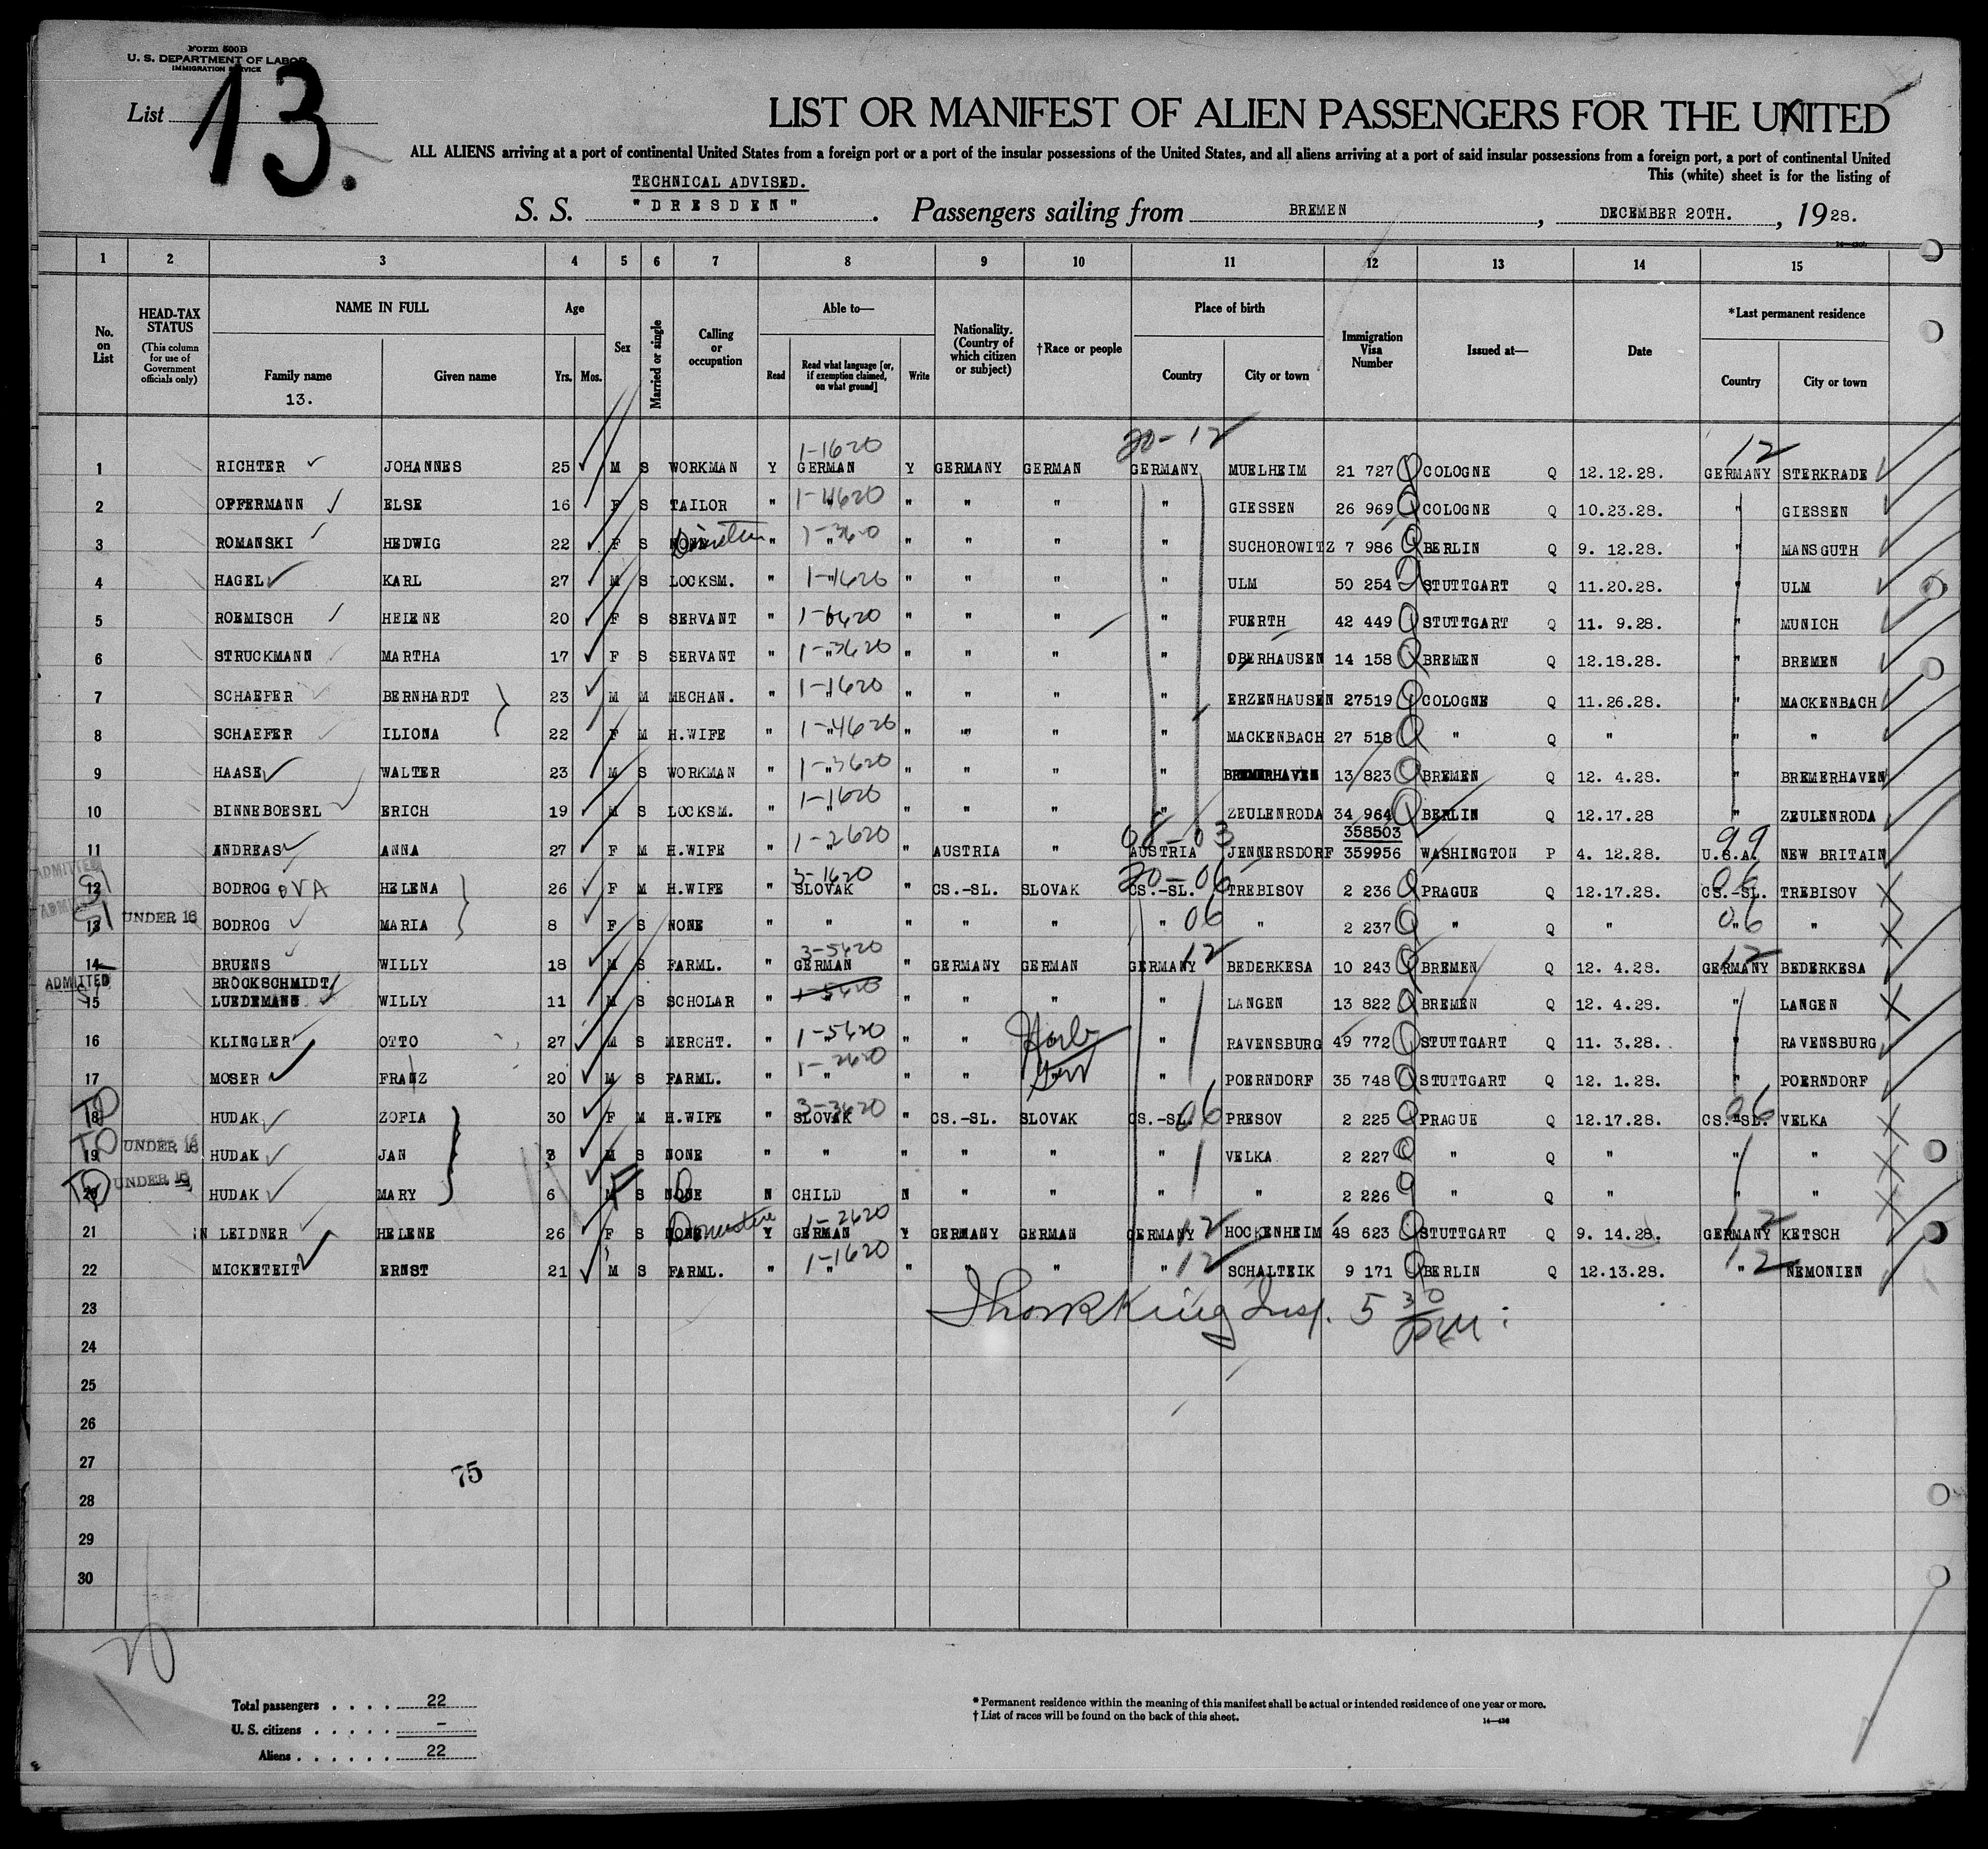 Form 500B
U. S. DEPARTMENT OF LABOR
IMMIGRATION SERVICE
List 13.
LIST OR MANIFEST OF ALIEN PASSENGERS FOR THE UNITED
ALL ALIENS arriving at a port of continental United States from a foreign port or a port of the insular possessions of the United States, and all aliens arriving at a port of said insular possessions from a foreign port, a port of continental United
This (white) sheet is for the listing of
TECHNICAL ADVISED.
S. S. "DRESDEN". Passengers sailing from BREMEN, DECEMBER 20TH., 1928.
1 2 3 4 5 6 7 8 9 10 11 12 13 14 15
No. on List
HEAD-TAX STATUS (This column for use of Government officials only)
NAME IN FULL
Family name
13.
Given name
Age
Yrs. Mos.
Sex
Married or single
Calling or occupation
Able to—
Read
Read what language [or, if exemption claimed, on what ground]
Write
Nationality. (Country of which citizen or subject)
†Race or people
Place of birth
Country
City or town
Immigration Visa Number
Issued at—
Date
*Last permanent residence
Country
City or town
1-1620 20-12 12
1 RICHTER JOHANNES 25 M S WORKMAN Y GERMAN Y GERMANY GERMAN GERMANY MUELHEIM 21 727 COLOGNE Q 12.12.28. GERMANY STERKRADE
2 OFFERMANN ELSE 16 F S TAILOR " 1-4620 " " " " GIESSEN 26 969 COLOGNE Q 10.23.28. " GIESSEN
3 ROMANSKI HEDWIG 22 F S " " " " " " SUCHOROWITZ 7 986 BERLIN Q 9. 12.28. " MANSGUTH
4 HAGEL KARL 27 M S LOCKSM. " 1-1620 " " " " ULM 50 254 STUTTGART Q 11.20.28. " ULM
5 ROEMISCH HELENE 20 F S SERVANT " 1-6620 " " " " FUERTH 42 449 STUTTGART Q 11. 9.28. " MUNICH
6 STRUCKMANN MARTHA 17 F S SERVANT " 1-3620 " " " " OBERHAUSEN 14 158 BREMEN Q 12.18.28. " BREMEN
7 SCHAEFER BERNHARDT 23 M M MECHAN. " 1-1620 " " " " ERZENHAUSEN 27519 COLOGNE Q 11.26.28. " MACKENBACH
8 SCHAEFER ILIONA 22 F M H.WIFE " 1-4620 " " " " MACKENBACH 27 518 " Q " " "
9 HAASE WALTER 23 M S WORKMAN " 1-3620 " " " " BREMERHAVEN 13 823 BREMEN Q 12. 4.28. " BREMERHAVEN
10 BINNEBOESEL ERICH 19 M S LOCKSM. " 1-1620 " " " " ZEULENRODA 34 964 BERLIN Q 12.17.28 " ZEULENRODA
1-2620 08-03 358503 99
11 ANDREAS ANNA 27 F M H.WIFE " " " AUSTRIA " AUSTRIA JENNERSDORF 359956 WASHINGTON P 4. 12.28. U.S.A. NEW BRITAIN
ADMITTED
SI 3-1620 20-06 06
12 BODROG OVA HELENA 26 F M H.WIFE " SLOVAK " CS.-SL. SLOVAK CS.-SL. TREBISOV 2 236 PRAGUE Q 12.17.28. CS.-SL. TREBISOV
SI
13 UNDER 16 BODROG MARIA 8 F S NONE " " " " " " 06 " 2 237 " Q " " 06 "
3-5620 12 12
14 BRUENS WILLY 18 M S FARML. " GERMAN " GERMANY GERMAN GERMANY BEDERKESA 10 243 BREMEN Q 12. 4.28. GERMANY BEDERKESA
ADMITTED BROCKSCHMIDT/
15 LUEDEMANN WILLY 11 M S SCHOLAR " 1-5620 " " " " LANGEN 13 822 BREMEN Q 12. 4.28. " LANGEN
16 KLINGLER OTTO 27 M S MERCHT. " 1-5620 " " " RAVENSBURG 49 772 STUTTGART Q 11. 3.28. " RAVENSBURG
17 MOSER FRANZ 20 M S FARML. " 1-2620 " " " " POERNDORF 35 748 STUTTGART Q 12. 1.28. " POERNDORF
TD 3-3620 06 06
18 HUDAK ZOFIA 30 F M H.WIFE " SLOVAK " CS.-SL. SLOVAK CS.-SL. PRESOV 2 225 PRAGUE Q 12.17.28. CS.-SL. VELKA
TD
19 UNDER 16 HUDAK JAN M S NONE " " " " " " VELKA 2 227 " Q " " "
TD
20 UNDER 16 HUDAK MARY 6 F S NONE N CHILD N " " " " 2 226 " Q " " "
Domestic 1-2620 12 12
21 LEIDNER HELENE 26 F S NONE Y GERMAN Y GERMANY GERMAN GERMANY HOCKENHEIM 48 623 STUTTGART Q 9. 14.28. GERMANY KETSCH
22 MICKETEIT ERNST 21 M S FARML. " 1-1620 " " " " 12 SCHALTEIK 9 171 BERLIN Q 12.13.28. " 12 NEMONIEN
23 King Insp. 5 30 PM
24
25
26
27
75
28
29
30
Total passengers . . . . 22
U. S. citizens . . . . . –
Aliens . . . . . . 22
* Permanent residence within the meaning of this manifest shall be actual or intended residence of one year or more.
† List of races will be found on the back of this sheet.